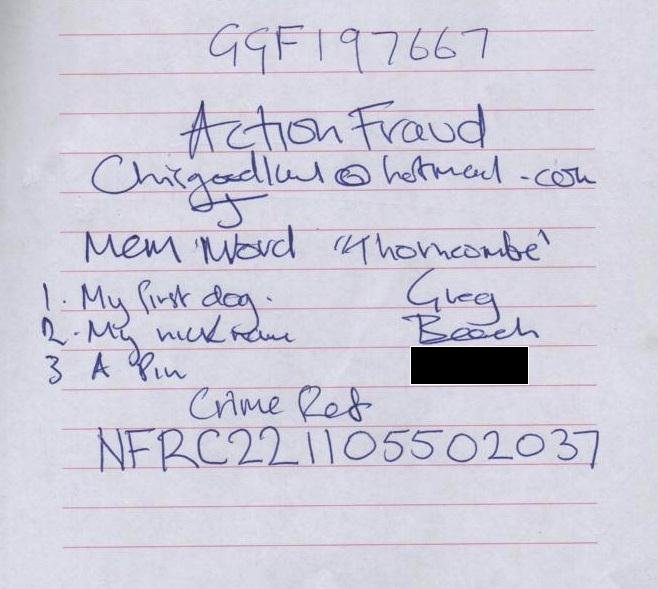 GGF197667
Action Fraud
@hotmail.com
Mem Word "Thorncombe"
1. My first dog. Greg
2. My nickname Beach
3 A Pin
Crime Ref
NFRC221105502037